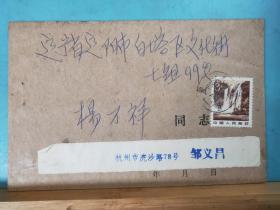 辽宁省辽阳市白塔区文化街
七组99号
杨才祥 同志
中国人民邮政
杭州市虎沙路78号 邹义昌
年 月 日